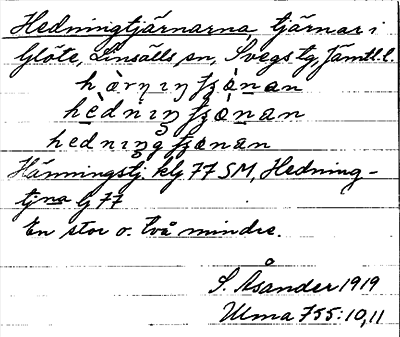 Hedningtjärnarna, tjärnar i
Glöte, Linsälls sn, Svegs tg, Jämtl. l.
hærniŋ
hèdniŋ
hedniŋg
Hänningstj. klg 77 SM, Hedning-
tjna lj 77
En stor o. två mindre.
S. Åsander 1919
Ulma 755:10,11